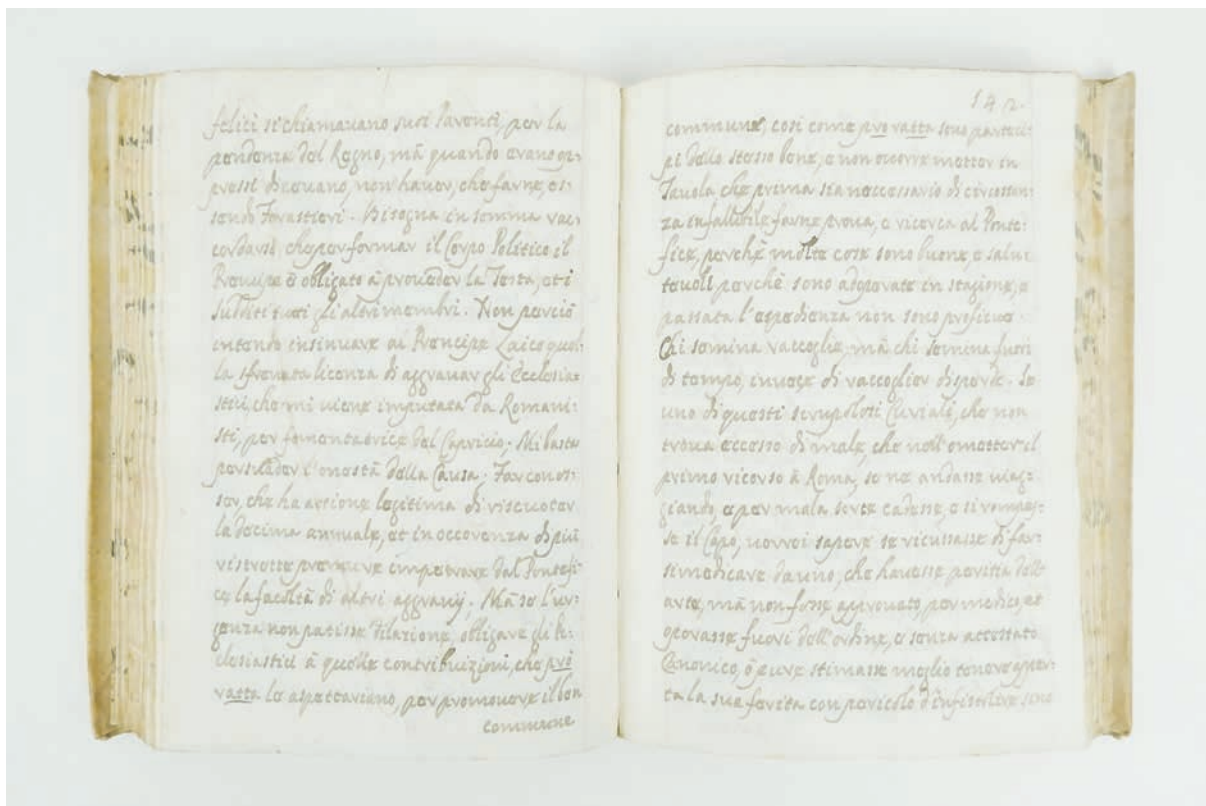 felici si chiamavano suoi Parenti, per la
pendenza del Regno, mà quando erano op:
pressi dicevano, non haver, che farne, es:
sendo Forastieri. Bisogna in somma rac:
cordarsi che per formar il Corpo Politico il
Prencipe è obligato à proveder la Testa, et i
sudditi tutti gli altri membri. Non perciò
intendo insinuare al Prencipe Laico quel:
la sfrenata licenza di aggravar gli Ecclesias
stici, che mi viene imputata da Romani:
sti, per fomentatrice del Capricio; Mi basta
persuader l'onestà della Causa. Far conos:
cer, che ha attione legitima di riscuoter
la decima annuale, et in occorenza di più
ristrette premure impetrare dal Pontefi:
ce la facoltà di altri aggravij. Mà se l'ur:
genza non patisse dilazione, obligare gli Ec:
clesiastici à quelle contribuizioni, che prò
ratta le aspettariano, per promovere il ben
commune
142.
commune, così come pro ratta sono parteci:
pi dello stesso bene, e non occorre metter in
Tavola che prima sia necessario di circostan:
za infallibile farne prova, e ricerca al Ponte:
fice, perchè molte cose sono buone, e salu
tevoli perchè sono adoprate in stagione, e
passata l'espedienza non sono proficue.
Chi semina raccoglie, mà chi semina fuori
di tempo, invece di raccoglier disperde. Se
uno di questi scrupolosi Curiali, che non
trova eccesso di male, che nell'ometter il
primo ricorso à Roma, se ne andasse viag:
giando, e per mala sorte cadesse, e si rompes:
se il Capo, vorrei sapere se ricusasse di far
si medicare da uno, che havesse peritia dell'
arte, mà non fosse approvato, per medico, et
operasse fuori dell'ordine, e senza attestato
Canonico, ò pure stimasse meglio tenere aper:
ta la sua ferita con pericolo d'infistolire sino